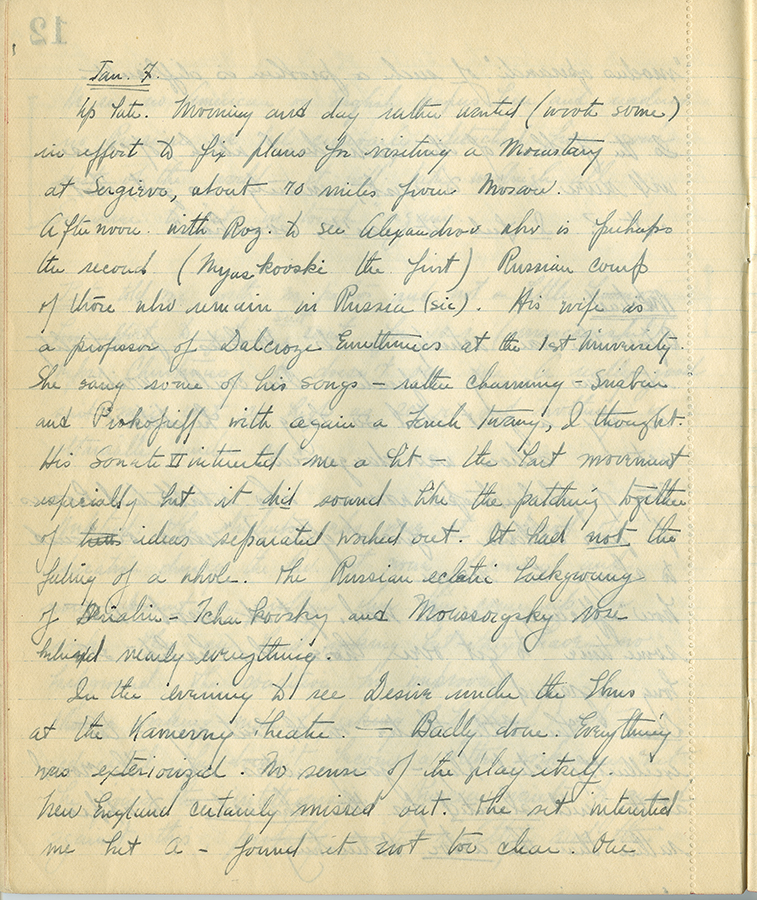 Jan. 7.
Up late. Morning and day rather wasted (work some)
in effort to fix plans for visiting a Monastary
at Sergievo, about 70 miles from Moscow.
Afternoon with Roz. to see Alexandrov who is perhaps
the second (Myaskovski the first) Russian comp
of those who remain in Russia (sic). His wife is
a professor of Dalcroze Eurethmics at the 1st University.
She sang some of his songs – rather charming – Sriabin
and Prokofieff with again a French twang, I thought.
His Sonate II interested me a bit – the last movement
especially but it did sound like the patching together
of ideas separated worked out. It had not the
feeling of a whole. The Russian eclectic background
of Sriabin – Tchaikovsky and Moussorgsky rose
behind nearly everything.
In the evening to see Desire under the Elms
at the Kamerny Theatre. — Badly done. Everything
was exteriorized. No sense of the play itself.
New England certainly missed out. The set interested
me but – found it not too clear. One